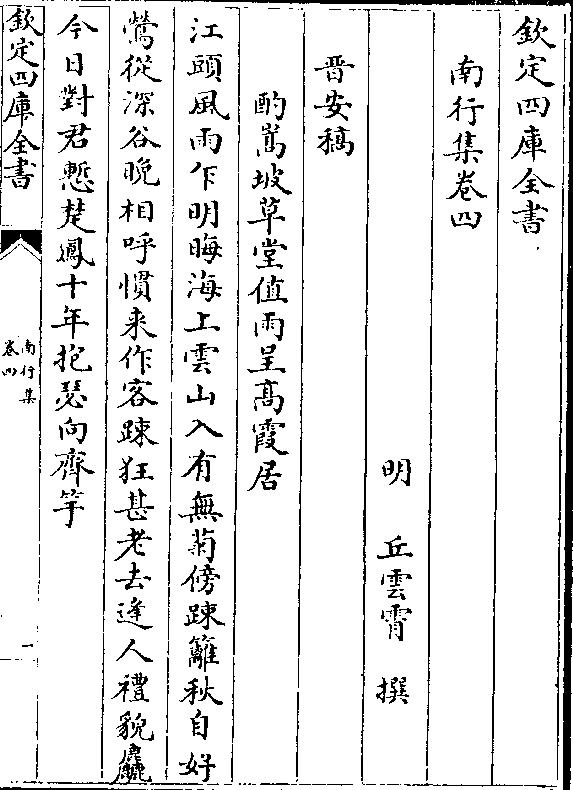 欽定四庫全書
南行集卷四
明 丘雲霄 撰
晋安稿
酌嵩坡草堂值雨呈髙霞居
江頭風雨乍明晦海上雲山入有無菊傍踈籬秋自好
鶯從深谷晚相呼慣来作客踈狂甚老去逢人禮貌麤
今日對君慙楚鳳十年抱瑟向齊竽
欽定四庫全書
南行集
卷四
一